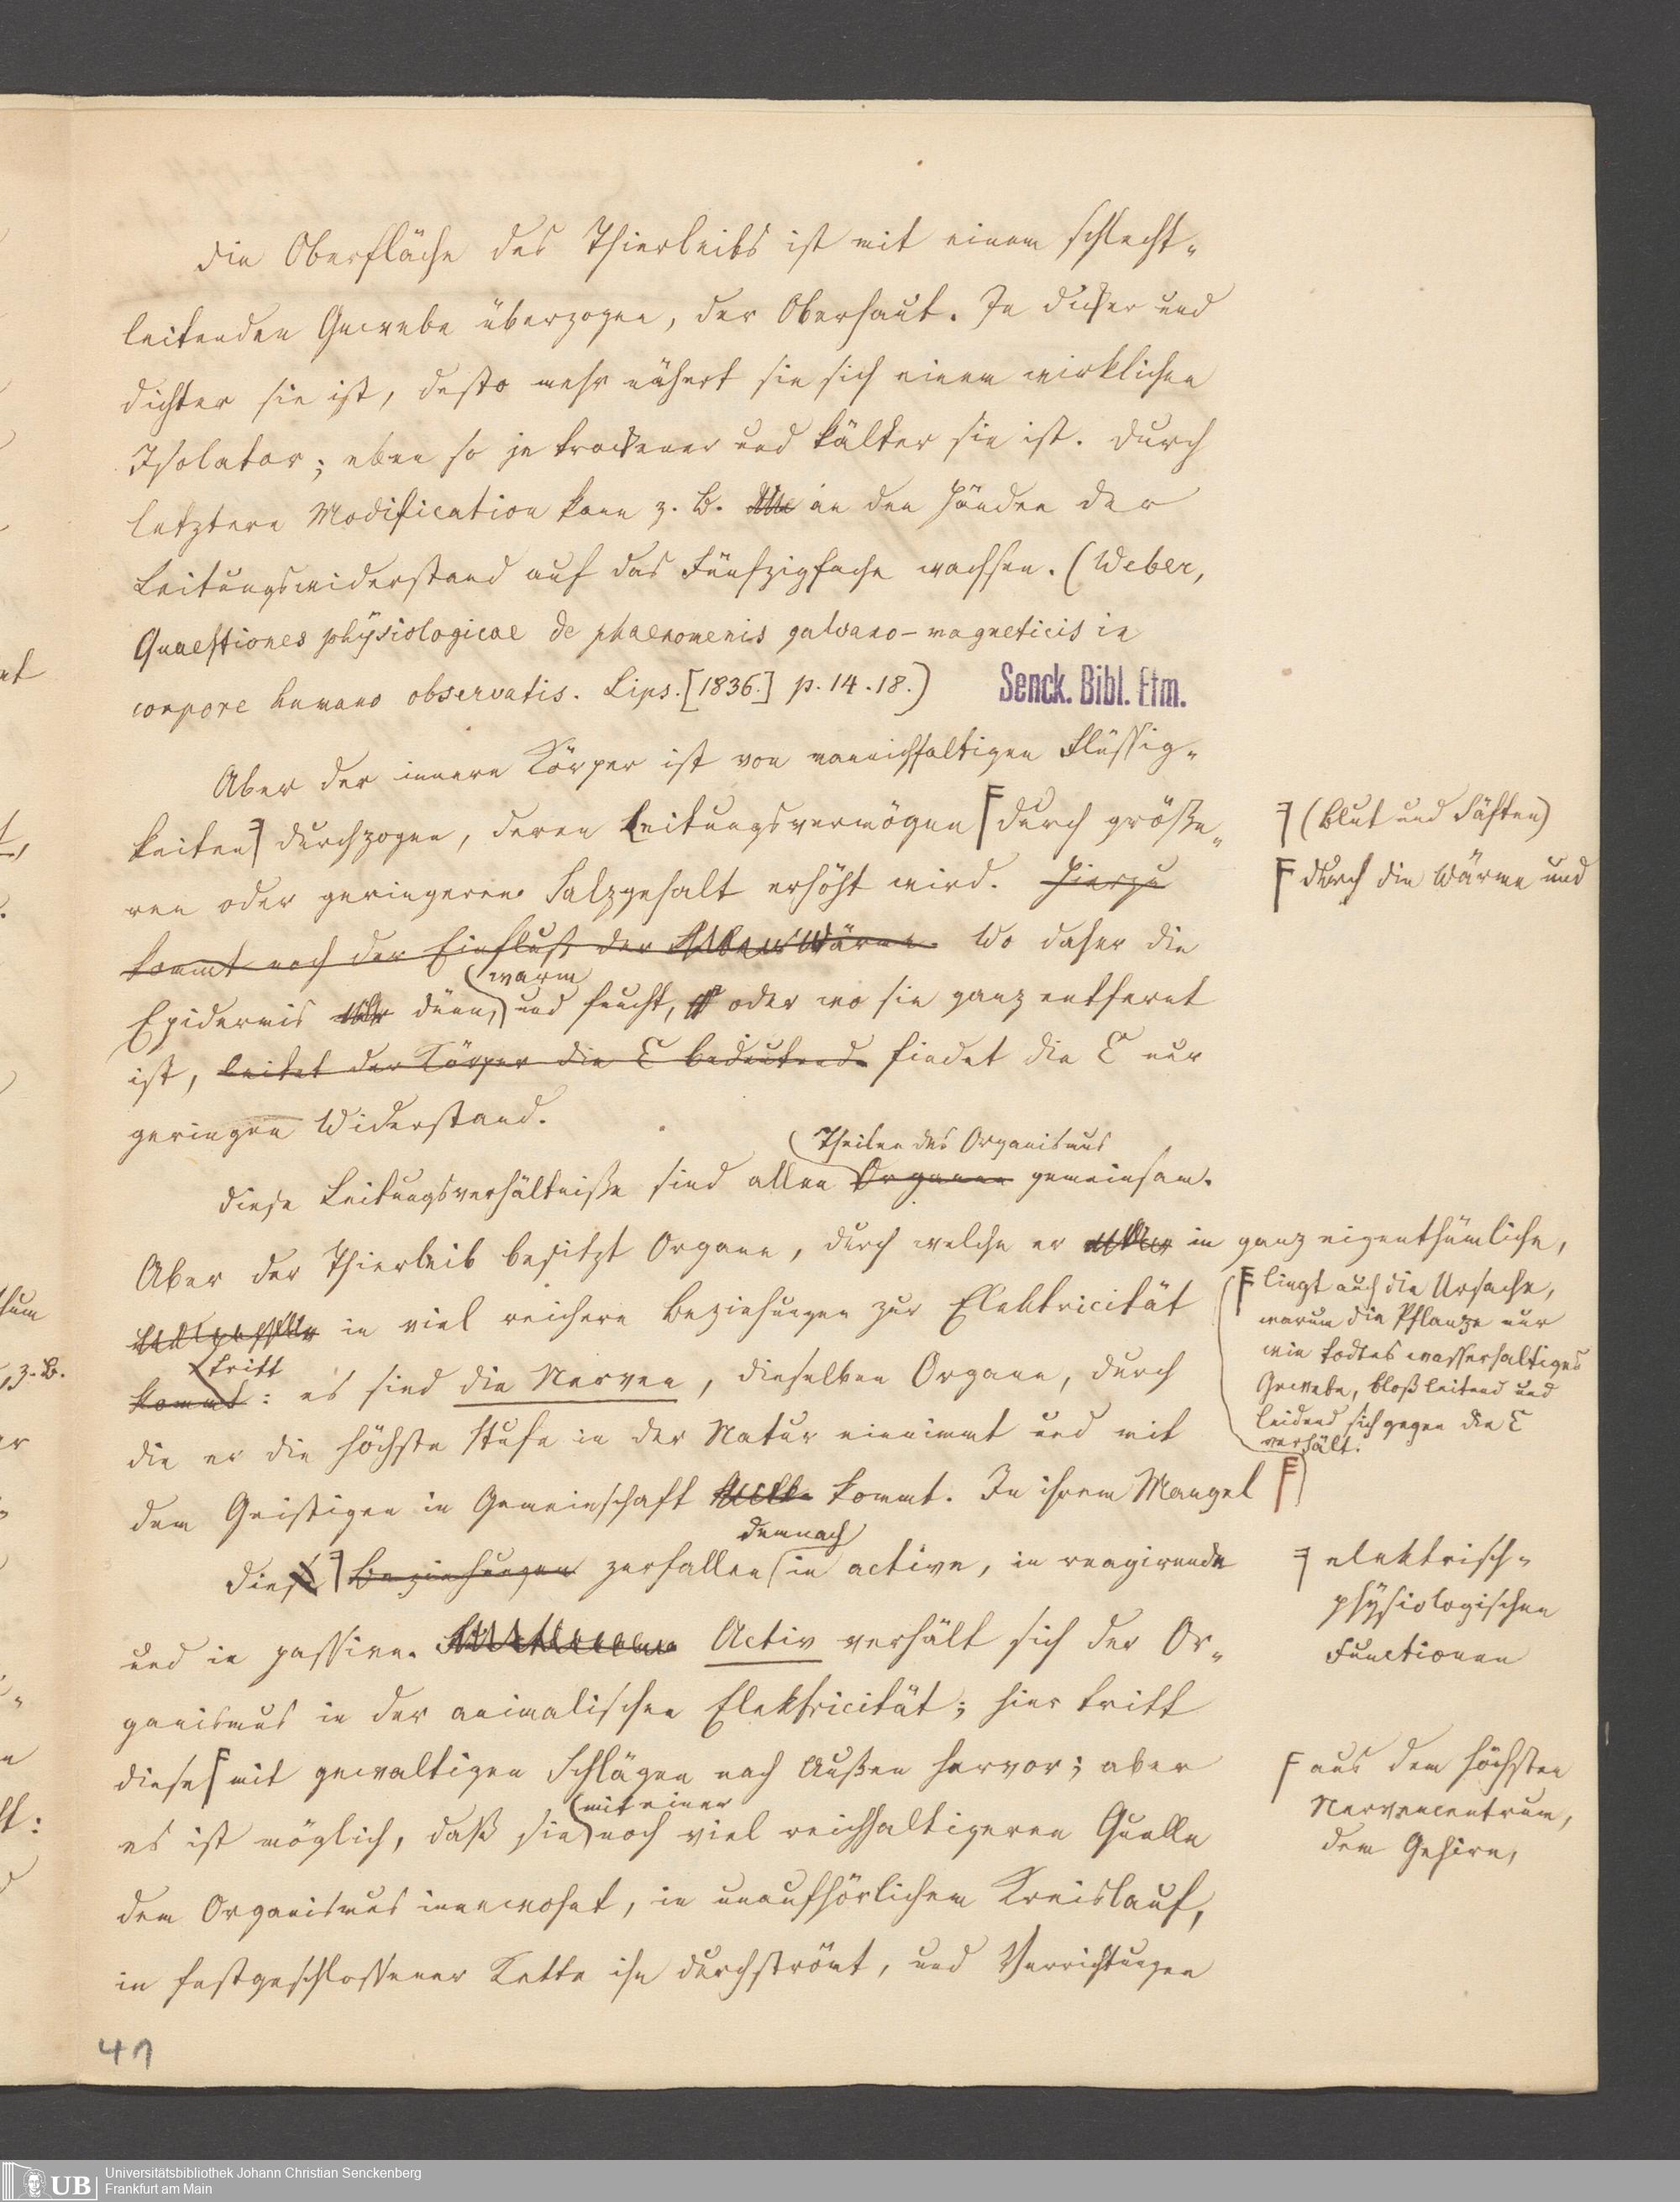 Die Oberfläche des Thierleibs ist mit einem schlecht-
leitenden Gewebe überzogen, der Oberhaut. Je dicker und
dichter sie ist, desto mehr nähert sie sich einem wirklichen
Isolator; eben so je trockener und kälter sie ist. Durch
letztere Modification kann z. B. an den Händen der
Leitungswiderstand auf das Fünfzigfache wachsen. (Weber,
Quaestiones physiologicae de phaenomenis galvano-magneticis in
corpore humano observatis. Lips. [1836.] p. 14. 18.)
Senck. Bibl. Ffm.
Aber der innere Körper ist von mannichfaltigen Flüssig-
keiten durchzogen, deren Leitungsvermögen durch größe-
(Blut und Säften)
ren oder geringeren Salzgehalt erhöht wird. Hierzu
durch die Wärme und
kommt noch der Einfluß der Wärme. Wo daher die
warm
Epidermis dünn, und feucht, oder wo sie ganz entfernt
ist, leitet der Körper die E bedeutend. findet die E nur
geringen Widerstand.
Theilen des Organismus
Diese Leitungsverhältniße sind allen Organen gemeinsam.
Aber der Thierleib besitzt Organe, durch welche er in ganz eigenthümliche,
in viel reichere Beziehungen zur Elektricität
tritt
kommt: es sind die Nerven, dieselben Organe, durch
die er die höchste Stufe in der Natur einnimmt und mit
dem Geistigen in Gemeinschaft kommt. In ihrem Mangel
liegt auch die Ursache,
warum die Pflanze nur
wie todtes wasserhaltiges
Gewebe, bloß leitend und
leidend sich gegen die E
verhält.
demnach
Diese Beziehungen zerfallen in active, in reagirende
elektrisch-
physiologischen
Functionen
und in passive. Activ verhält sich der Or-
ganismus in der animalischen Elektricität; hier tritt
diese mit gewaltigen Schlägen nach Außen hervor; aber
aus dem höchsten
Nervencentrum,
dem Gehirn,
mit einer
es ist möglich, daß sie noch viel reichhaltigeren Quelle
dem Organismus innewohnt, in unaufhörlichem Kreislauf,
in festgeschlossener Kette ihn durchströmt, und Verrichtungen
41
UB Universitätsbibliothek Johann Christian Senckenberg
Frankfurt am Main